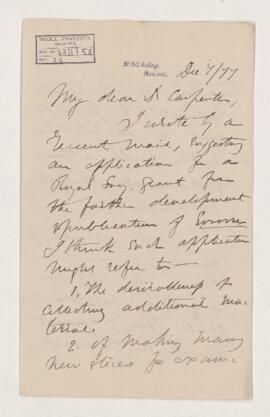 McGILL UNIVERSITY
ARCHIVES
ACC. NO. 2211/58
REF. 22
McGill College,
Montreal.
Dec 4/77
My dear Dr Carpenter,
I wrote by a
recent mail, suggesting
an application for a
Royal Soc. grant for
the further development
& publication of Eozoon
I think such application
might refer to —
1. The desirableness of
collecting additional ma-
terial.
2. of making many
new slices for exami-